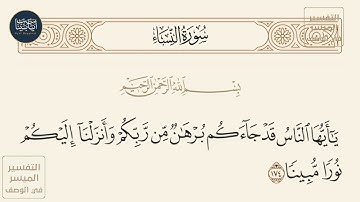 سُورَةُ النِّسَاءِ
بِسْمِ اللَّهِ الرَّحْمَٰنِ الرَّحِيمِ
يَٰٓأَيُّهَا ٱلنَّاسُ قَدْ جَآءَكُم بُرْهَٰنٌ مِّن رَّبِّكُمْ وَأَنزَلْنَآ إِلَيْكُمْ
نُورًا مُّبِينًا ١٧٤
التفسير
الميسر
في الوصف
التفسير
الميسر